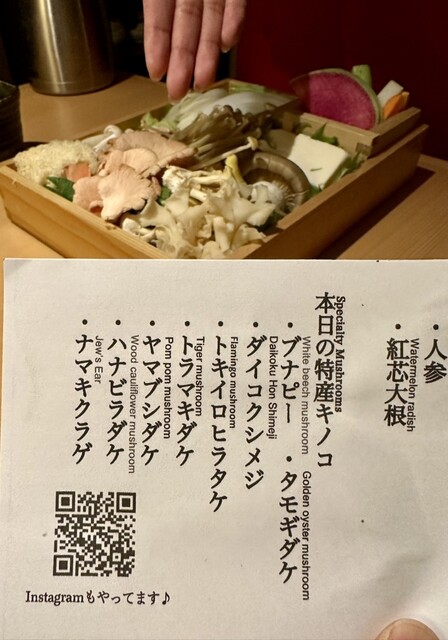 ・人参
Watermelon radish
・紅芯大根
Specialty Mushrooms
本日の特産キノコ
White beech mushroom
・ブナピー
Golden oyster mushroom
・タモギダケ
Daikoku Hon Shimeji
・ダイコクシメジ
Flamingo mushroom
・トキイロヒラタケ
Tiger mushroom
・トラマキダケ
Pom pom mushroom
・ヤマブシダケ
Wood cauliflower mushroom
・ハナビラダケ
Jew's Ear
・ナマキクラゲ
Instagramもやってます♪